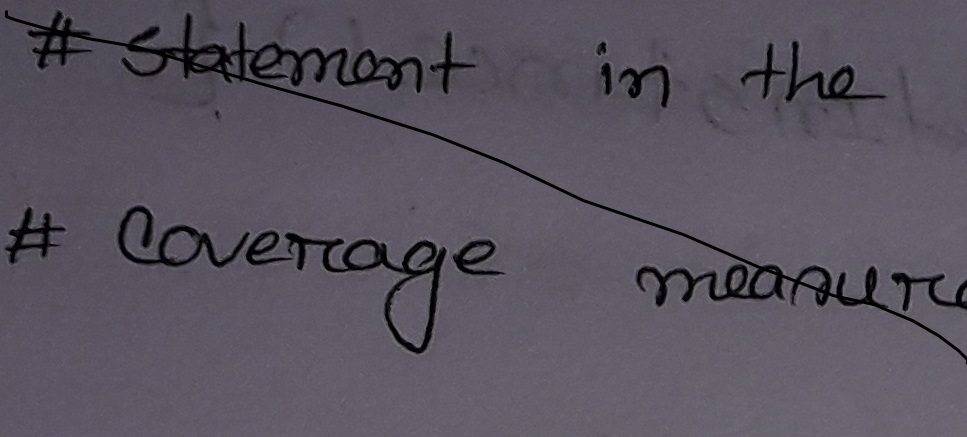 # statement in the
# Coverage measure